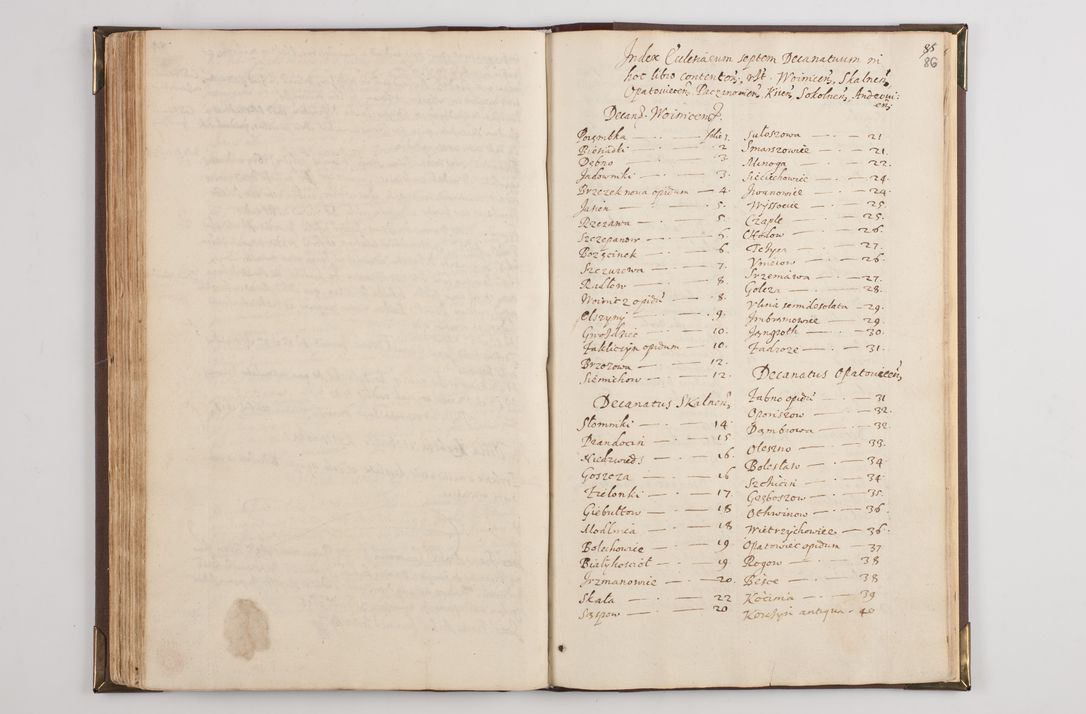 85
86
Index Ecclesiarum septem Decanatuum in
hoc libro contentor, vzt. Woinicen, Skalnen,
Opatovicen, Paczanovien, Kijen, Sokolnen, Androvi:
en:
Decan. Woinicen.
Porąmbka folio 1.
Biesiadki — 2
Dębno — 3.
Jadowniki — 3.
Brzezek nova opidum — 4.
Jasien — 5.
Rzezawa — 5.
Szczepanow — 6.
Borzęcinek — 6.
Szczurowa — 7.
Radlow — 8.
Woinicz opidu — 8.
Olszyny — 9.
Gwozdziec — 10.
Zakliczyn opidum — 10.
Brzozowa — 12.
Siemichow — 12.
Decanatus Skalnen,
Słomniki — 14.
Prandocin — 15
Niedzwiedz — 16.
Goszcza — 16
Zielonki — 17.
Giebułtow — 18
Modlnica — 18
Bolechowice — 19.
Białykosciół — 19
Jrzmanowice — 20.
Skała — 22
Sąspow — 20
Sułoszowa — 21
Smarszowice — 21.
Minoga — 22.
Sieciechowice — 24.
Jwanowice — 24.
Wyssocie — 25.
Czaple — 25.
Chodow — 26.
Tczyca — 27.
Vnieiow — 26.
Srzeniawa — 27.
Golcza — 28.
Vlina semidesolata — 29.
Jmbramowice — 29.
Jangroth — 30.
Zadroze — 31.
Decanatus Opatovicen,
Żabno opidu — 31
Oporiszow — 32.
Dąmbrowa — 32.
Oleszno — 33.
Bolesław — 34
Szchucin — 34.
Gręboszow — 35.
Othwinow — 36.
Wietrzychowice — 36.
Opatowiec opidum — 37
Rogow — 38
Beice — 38
Kocina — 39
Korczyn antiqua — 40